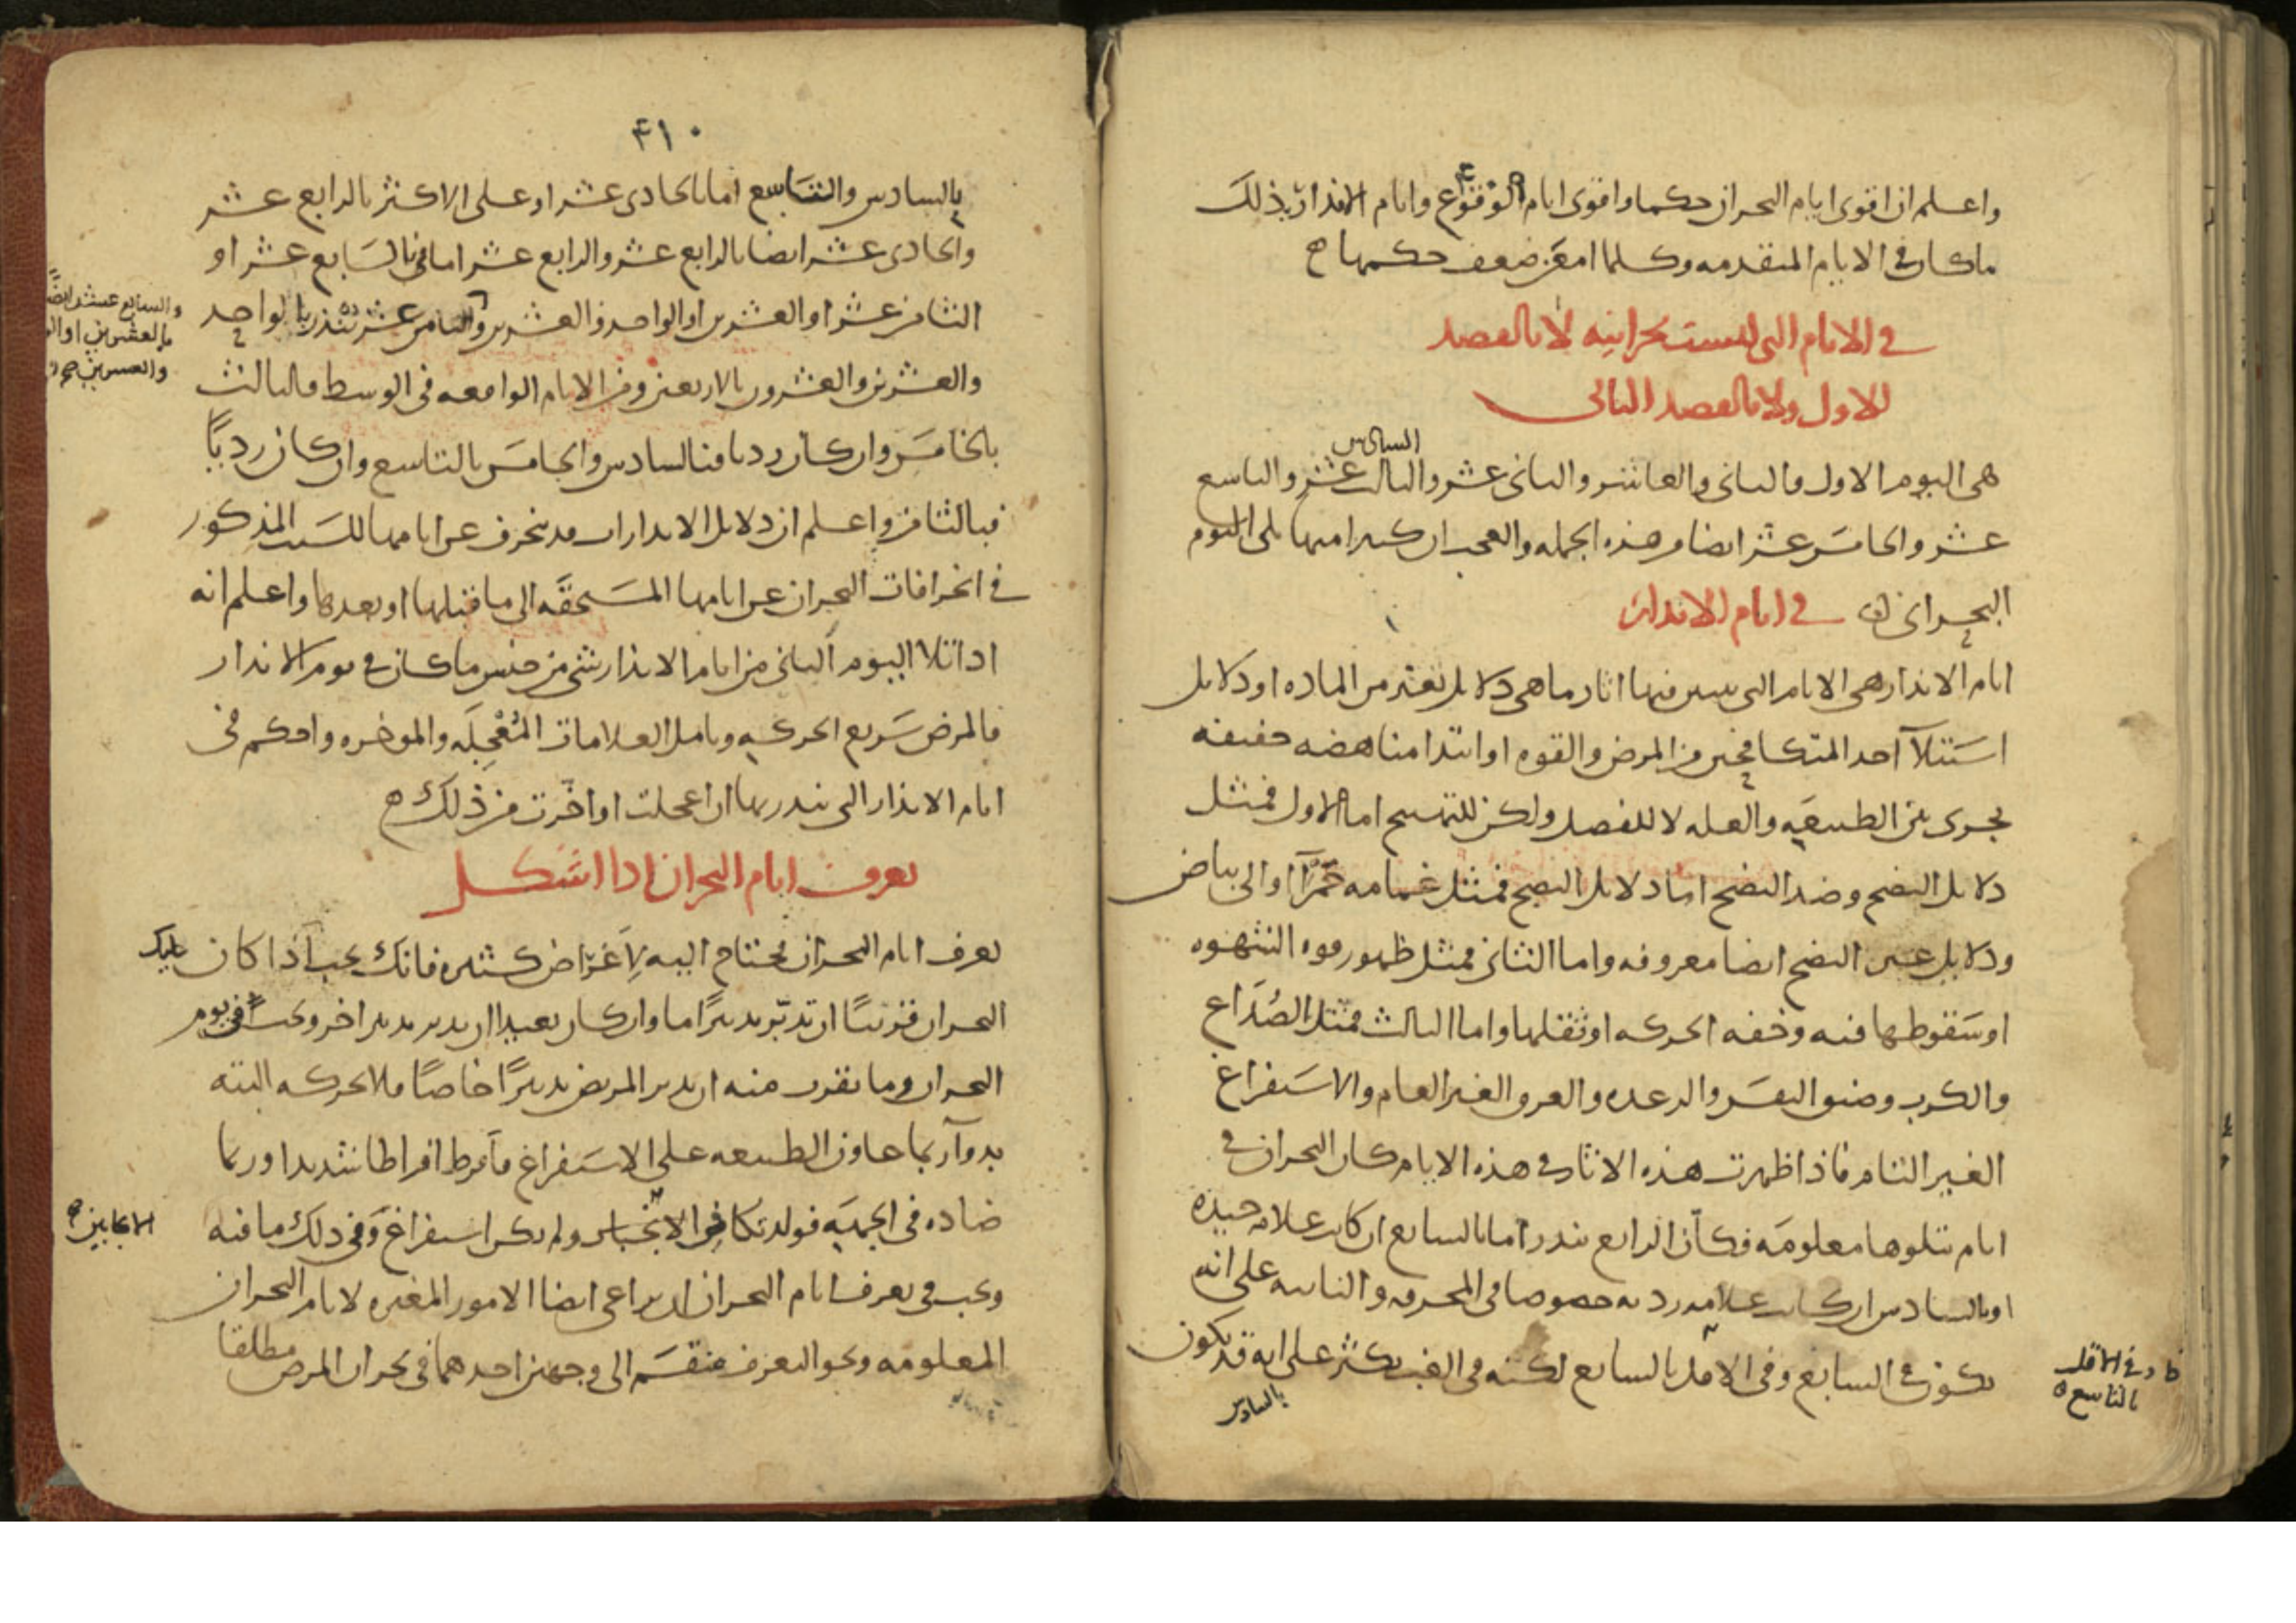 واعلم ان اقوى ايام البحران حكما واقوى ايام الوقوع وايام الانذار بذلك
ما كان في الايام المتقدمه وكلما امعن ضعف حكمها ه
في الايام التى ليست بحرانيه لا بالقصد
الاول ولا بالقصد الثانى
هى اليوم الاول والثانى والعاشر والثانى عشر والثالث عشر والتاسع
السادس
عشر والخامس عشر ايضا من هذه الجمله والعجب ان كثيرا منها يلى اليوم
البحرانى في ايام الانذار
ايام الانذار هى الايام التى يتبين فيها اثار ما هى دلايل تغير من الماده او دلايل
استيلا احد المتكافحين من المرض والقوه او ابتدا مناهضه خفيفه
يجرى بين الطبيعه والعله لا للفصل ولكن للتهييج اما الاول فمثل
دلايل النضج وضد النضج اما دلايل النضج فمثل غمامه حمرا او الى بياض
ودلايل غير النضج ايضا معروفه واما الثانى فمثل ظهور قوه الشهوه
او سقوطها فيه وخفه الحركه او ثقلها واما الثالث فمثل الصداع
والكرب وضيق النفس والرعده والعرق الغير العام والاستفراغ
الغير التام فاذا ظهرت هذه الاثار فى هذه الايام كان البحران فى
ايام تتلوها معلومه فكان الرابع ينذر اما بالسابع ان كانت علامه جيده
او بالسادس ان كانت علامه رديه خصوصا فى المحرقه والنائبه على انه
يكون فى السابع وفى الاقل بالسابع لكنه فى الغب يكثر على انه قد يكون
فى الاقل
بالتاسع ه
بالسادس
٤١٠
بالسادس والتاسع اما بالحادى عشر او على الاكثر بالرابع عشر
والحادى عشر ايضا بالرابع عشر والرابع عشر اما فى بالسابع عشر او
الثامن عشر او العشرين او الواحد والعشرين والثامن عشر ينذر بالواحد
والعشرين والعشرون بالاربعين ومن الايام الواقعه فى الوسط فالثالث
والسابع عشر ايضا
بالعشرين او
والعشرين صح
بالخامس وان كان رديا فبالسادس والخامس بالتاسع وان كان رديا
فبالثامن واعلم ان دلايل الانذارات قد تنحرف عن ايامها للسبب المذكور
فى انحرافات البحران عن ايامها المستحقه الى ما قبلها او بعدها واعلم انه
اذا تلا اليوم الثانى من ايام الانذار شى من جنس ما كان فى يوم الانذار
فالمرض سريع الحركه وتامل العلامات المعجله والموخره واحكم فى
ايام الانذار التى ينذر بها ان عجلت او اخرت من ذلك ه
تعرف ايام البحران اذا اشكل
تعرف ايام البحران محتاج اليه لاغراض كثيره فانك يجب اذا كان
البحران قريبا ان تدبر تدبيرا ما وان كان بعيدا ان تدبر تدبيرا اخر ويجب فى يوم
البحران وما يقرب منه ان يدبر المريض تدبيرا خاصا فلا تحركه البته
بدوا ربما عاون الطبيعه على الاستفراغ فافرط افراطا شديدا وربما
ضاده فى الجهه فولد تكافى ولم يكن استفراغ وفى ذلك ما فيه
ويجب فى تعرف ايام البحران ان يراعى ايضا الامور المغيره لايام البحران
المعلومه ونحو التعرف منقسم الى وجهين احدهما فى بحران المرض مطلقا